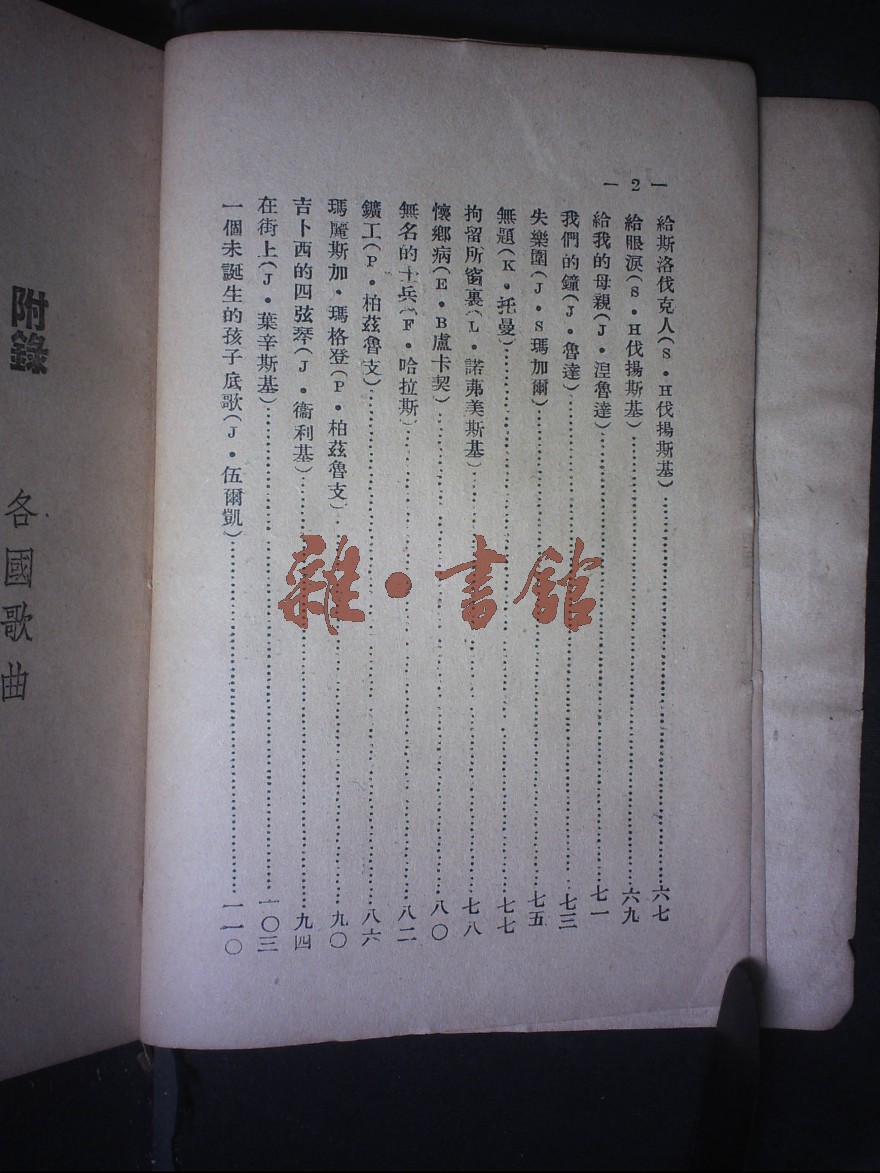 — 2 —
給斯洛伐克人(S·H伐揚斯基)……六七
給眼淚(S·H伐揚斯基)……六九
給我的母親(J·湼魯達)……七一
我們的鐘(J·魯達)……七三
失樂園(J·S瑪加爾)……七五
無題(K·托曼)……七七
拘留所窗裏(L·諾弗美斯基)……七八
懷鄉病(E·B盧卡契)……八〇
無名的士兵(F·哈拉斯)……八二
鑛工(P·柏茲魯支)……八六
瑪麗斯加·瑪格登(P·柏茲魯支)……九〇
吉卜西的四弦琴(J·衞利基)……九四
在街上(J·葉辛斯基)……一〇三
一個未誕生的孩子底歌(J·伍爾凱)……一一〇
附錄
各國歌曲
雜·書館